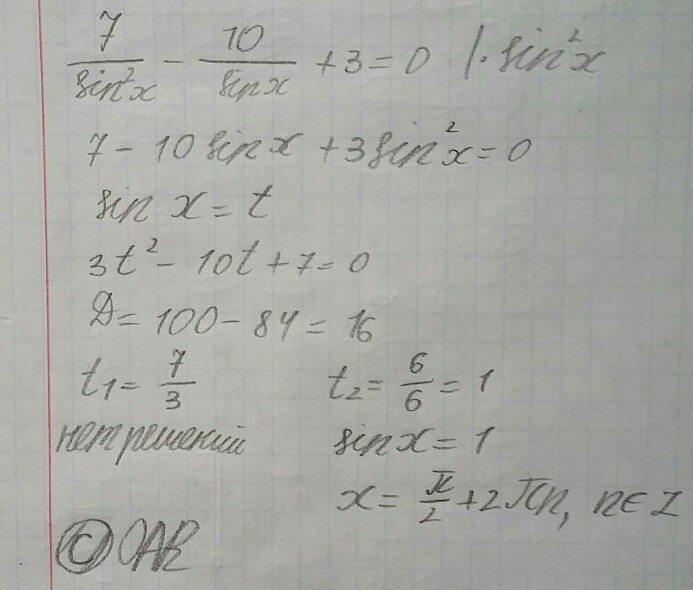 7/sin²x - 10/sinx + 3 = 0 |· sin²x
7 - 10 sin x + 3 sin²x = 0
sin x = t
3t² - 10t + 7 = 0
D = 100 - 84 = 16
t₁ = 7/3 t₂ = 6/6 = 1
нет решений sin x = 1
x = π/2 + 2πn, n∈Z
© OAR